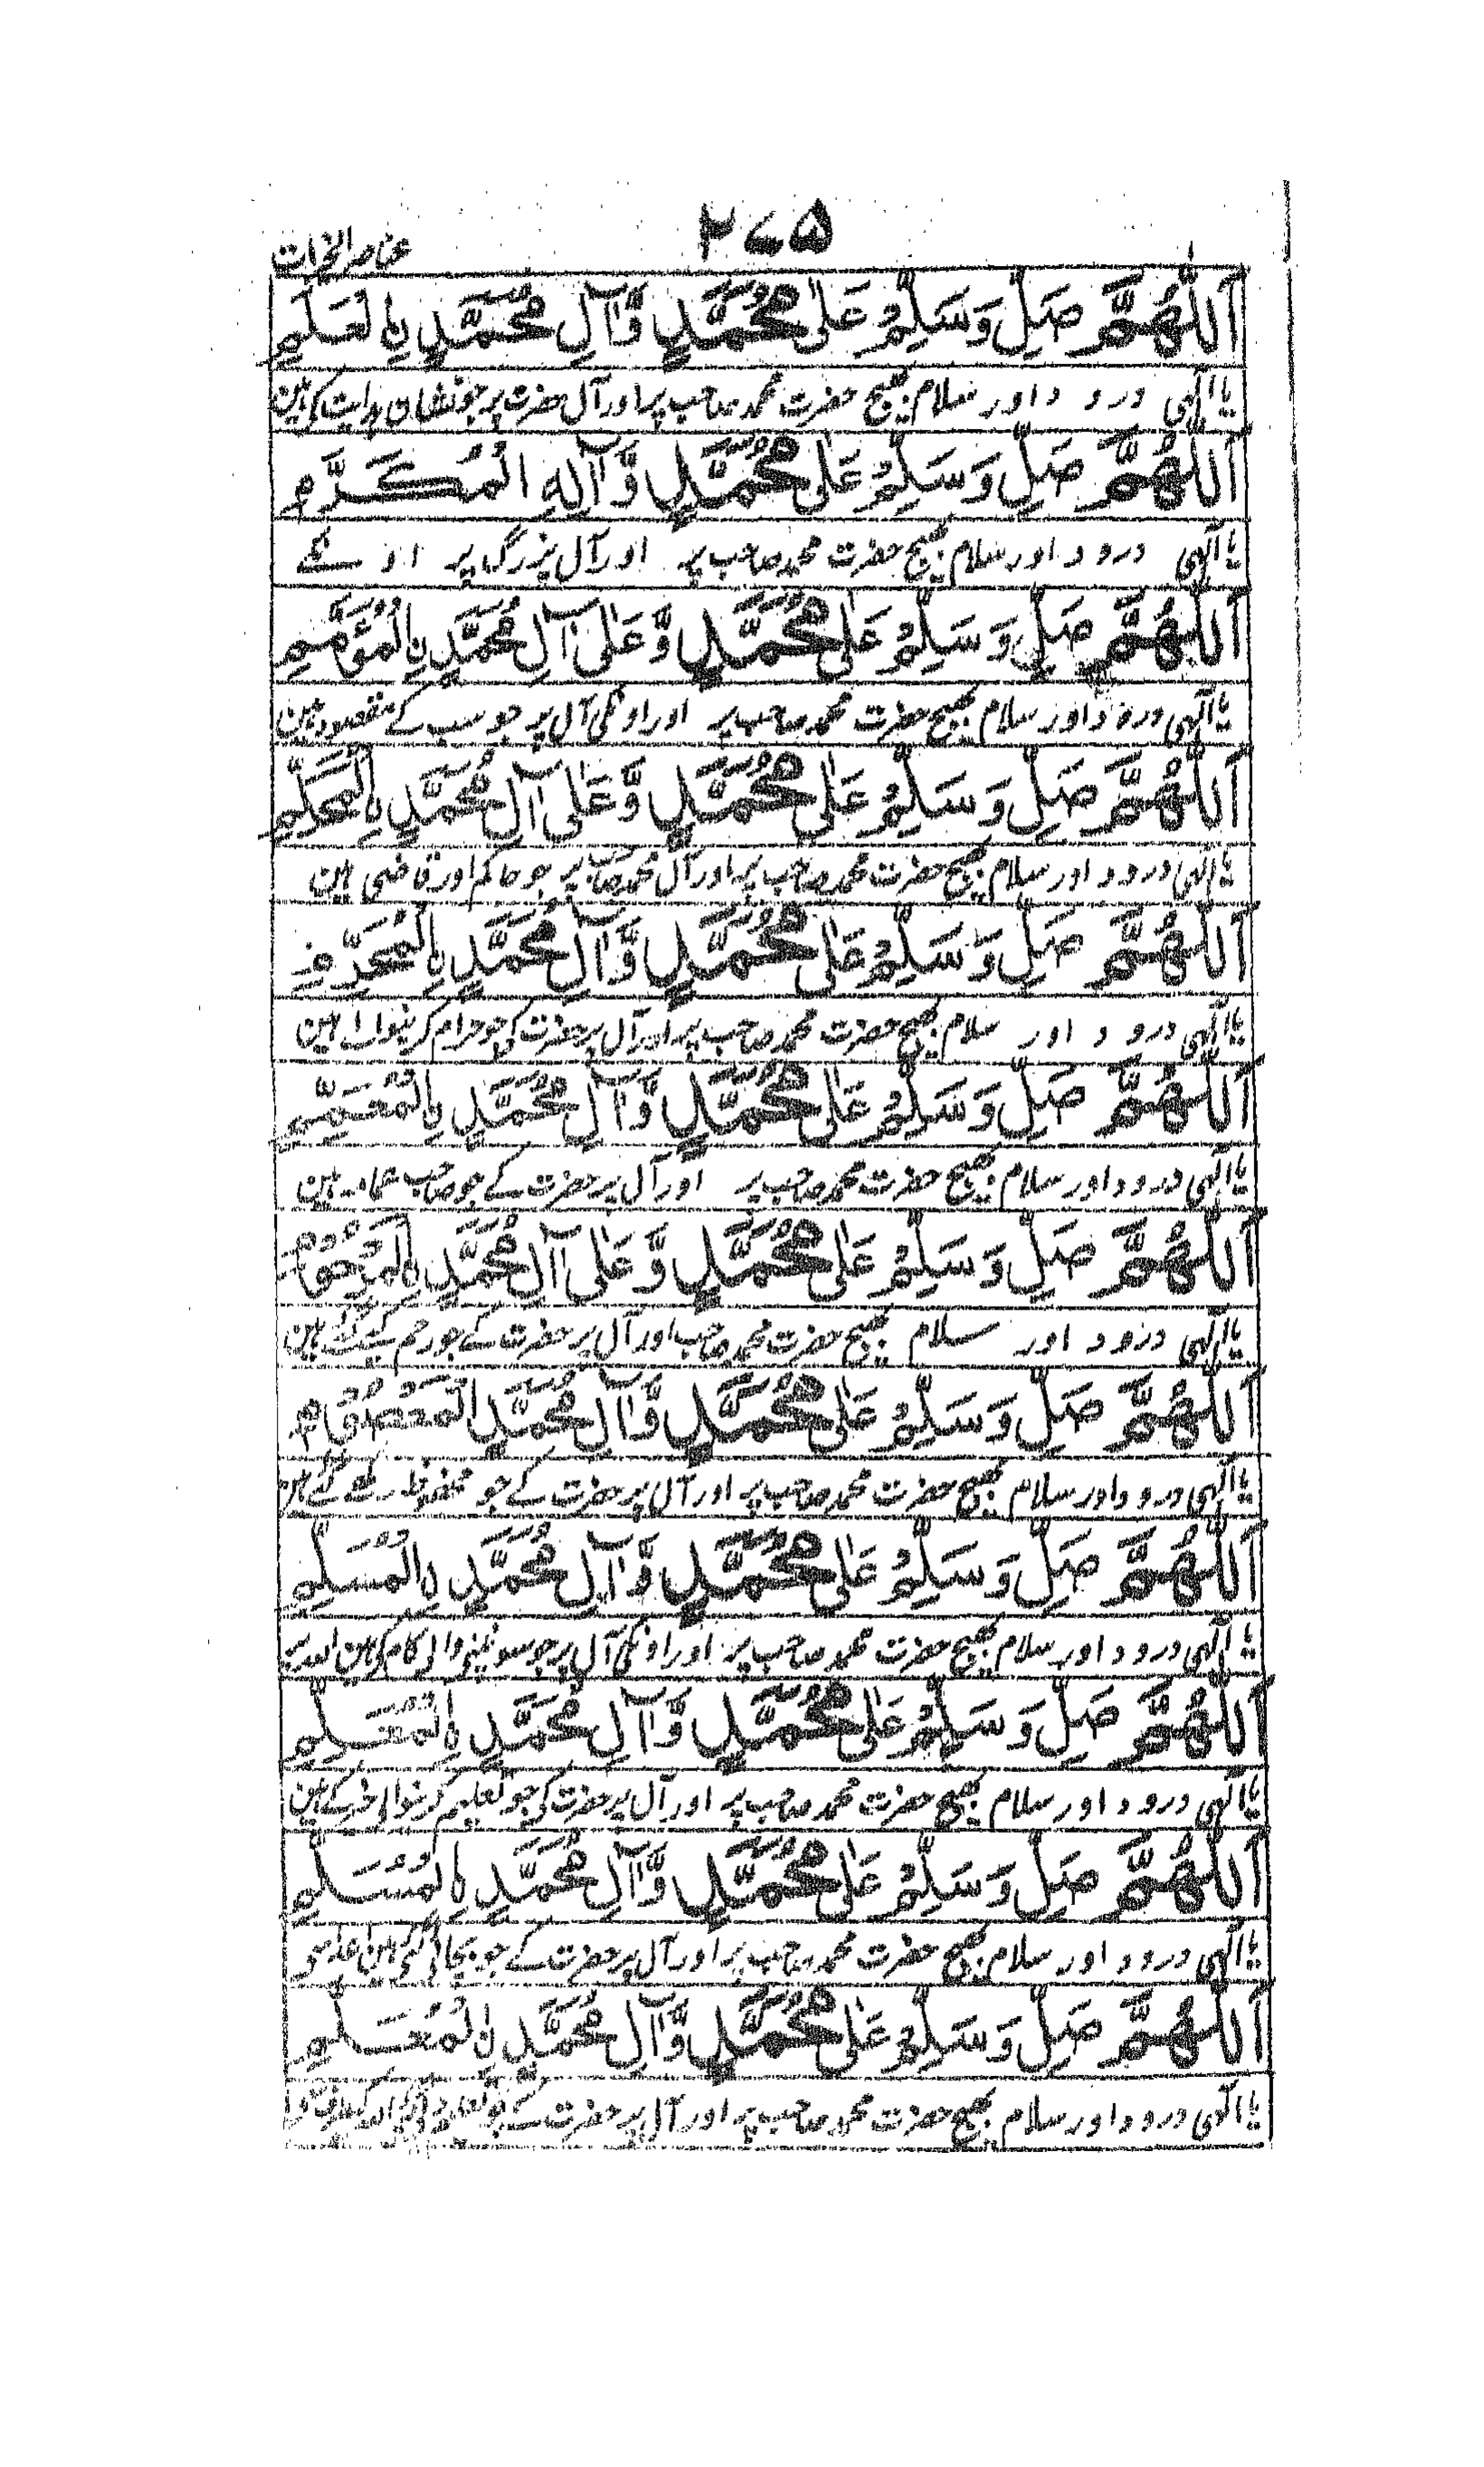 ۲۷۵
عناصر الخیرات
اَللّٰهُمَّ صَلِّ وَسَلِّمْ عَلٰى مُحَمَّدٍ وَّاٰلِ مُحَمَّدِ نِالْعَلَمِ
یا الٰہی درود اور سلام بھیج حضرت محمد صاحب پر اور آل حضرت پر جو نشان ہدایت کے ہین
اَللّٰهُمَّ صَلِّ وَسَلِّمْ عَلٰى مُحَمَّدٍ وَّاٰلِهِ الْمُكَرَّمِ
یا الٰہی درود اور سلام بھیج حضرت محمد صاحب پر اور آل بزرگ پر اونکے
اَللّٰهُمَّ صَلِّ وَسَلِّمْ عَلٰى مُحَمَّدٍ وَّعَلٰى اٰلِ مُحَمَّدِ نِالْمُؤَمَّمِ
یا الٰہی درود اور سلام بھیج حضرت محمد صاحب پر اور اونکی آل پر جو سب کے مقصود ہین
اَللّٰهُمَّ صَلِّ وَسَلِّمْ عَلٰى مُحَمَّدٍ وَّعَلٰى اٰلِ مُحَمَّدِ نِالْمُحَكَّمِ
یا الٰہی درود اور سلام بھیج حضرت محمد صاحب پر اور آل محمد صاحب پر جو حاکم اور قاضی ہین
اَللّٰهُمَّ صَلِّ وَسَلِّمْ عَلٰى مُحَمَّدٍ وَّاٰلِ مُحَمَّدِ نِالْمُحَرِّمِ
یا الٰہی درود اور سلام بھیج حضرت محمد صاحب پر اور آل پر حضرت کی جو حرام کرنیوالے ہین
اَللّٰهُمَّ صَلِّ وَسَلِّمْ عَلٰى مُحَمَّدٍ وَّاٰلِ مُحَمَّدِ نِالْمُعَمَّمِ
یا الٰہی درود اور سلام بھیج حضرت محمد صاحب پر اور آل پر حضرت کے جو صاحب عمامہ ہین
اَللّٰهُمَّ صَلِّ وَسَلِّمْ عَلٰى مُحَمَّدٍ وَّعَلٰى اٰلِ مُحَمَّدِ نِالْمَرْحُوْمِ
یا الٰہی درود اور سلام بھیج حضرت محمد صاحب اور آل پر حضرت کے جو رحم کیے گئے ہین
اَللّٰهُمَّ صَلِّ وَسَلِّمْ عَلٰى مُحَمَّدٍ وَّاٰلِ مُحَمَّدِ الْمَعْصُوْمِ
یا الٰہی درود اور سلام بھیج حضرت محمد صاحب پر اور آل پر حضرت کے جو محفوظ رکھے گئے ہین
اَللّٰهُمَّ صَلِّ وَسَلِّمْ عَلٰى مُحَمَّدٍ وَّاٰلِ مُحَمَّدِ نِالْمُسَلِّمِ
یا الٰہی درود اور سلام بھیج حضرت محمد صاحب پر اور اونکی آل پر جو سونپنے والی کام کے ہین اللہ پر
اَللّٰهُمَّ صَلِّ وَسَلِّمْ عَلٰى مُحَمَّدٍ وَّاٰلِ مُحَمَّدِ نِالْمُعَلِّمِ
یا الٰہی درود اور سلام بھیج حضرت محمد صاحب پر اور آل پر حضرت کی جو تعلیم کرنیوالے خیر کے ہین
اَللّٰهُمَّ صَلِّ وَسَلِّمْ عَلٰى مُحَمَّدٍ وَّاٰلِ مُحَمَّدِ نِالْمُسَلَّمِ
یا الٰہی درود اور سلام بھیج حضرت محمد صاحب پر اور آل پر حضرت کے جو بچائے گئے ہین
اَللّٰهُمَّ صَلِّ وَسَلِّمْ عَلٰى مُحَمَّدٍ وَّاٰلِ مُحَمَّدِ نِالْمُعَلَّمِ
یا الٰہی درود اور سلام بھیج حضرت محمد صاحب پر اور آل پر حضرت کے جو